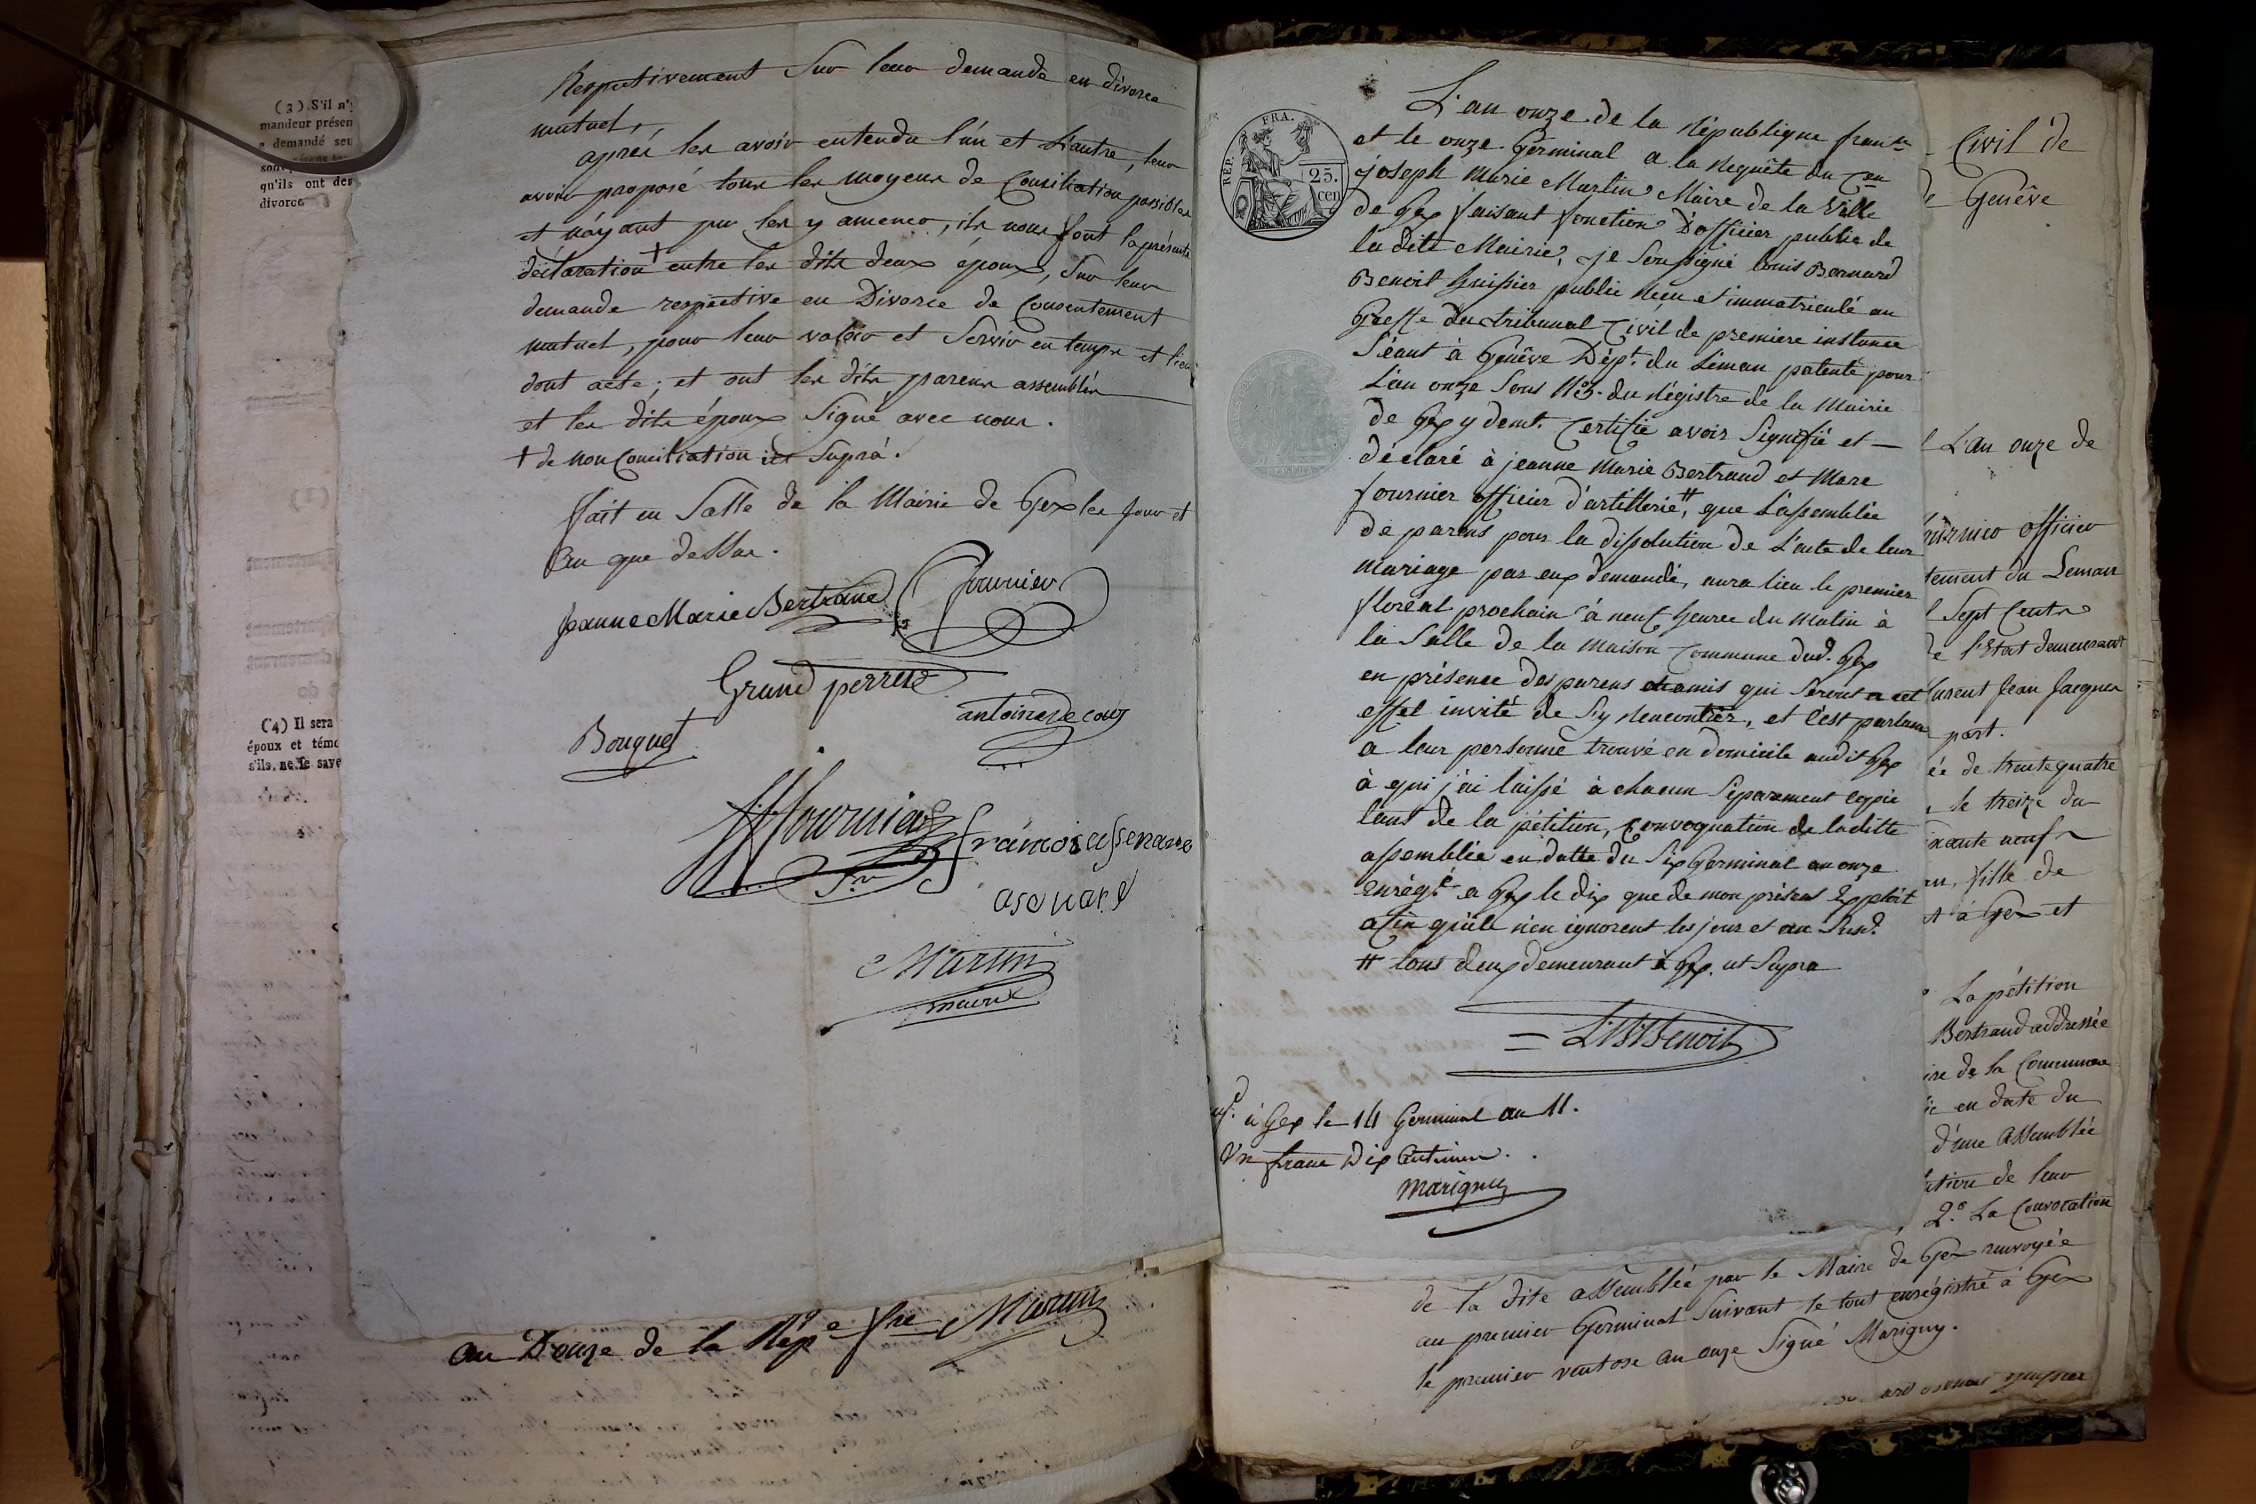 (3) S'il n'
mandeur présen
demandé seu
qu'ils ont de
divorce
(4) Il sera
époux et témo
s'ils ne le save
Respectivement Sur leur demande en divorce
mutuel,
après les avoir entendu l'un et L'autre, leur
avoir proposé tous les moyens de Conciliation possibles
et n'áyant pu les y amener, ils nous font la présente
déclaration † entre les dits deux époux, Sur leur
demande respective en Divorce de Consentement
mutuel, pour leur valoir et Servir en temps et lieu
dont acte; et ont les dits parens assemblés
et les dits époux Signé avec nous.
† de non Conciliation Suprà.
fait en Salle de la Mairie de Gex les jour et
an que dessus.
Jeanne Marie Bertrand Fournier
Grand perret
antoine De cour
Bouquet
Fournier
francois assenare
asenare
Martin
maire
an Douze de la Répe. fse Martin
REP. FRA.
25.
cen
L'an onze de la République franse
et le onze Germinal a la Requête du Cen
joseph Marie Martin Maire de la Ville
de Gex faisant fonction D'officier public de
la dite Mairie, je Soussigné Louis Bernard
Benoit huissier public Reçu et immatriculé au
Greffe du tribunal Civil de premiere instance
Séant à Genêve Dépt. du Léman patenté pour
L'an onze Sous N° 3. du Régistre de la Mairie
de Gex y demt. Certifie avoir Signifié et
déclaré à jeanne Marie Bertrand et Marc
fournier officier d'artillerie, # que L'assemblée
de parens pour la dissolution de L'acte de leur
Mariage par eux demandé, aura lieu le premier
floréal prochain à neuf heures du Matin à
la Salle de la Maison Commune dud. Gex
en présence des parens amis qui Seront a cet
effet invité de S'y Rencontrer, et c'est parlant
a leur personne trouvé en domicile audit Gex
à qui j'ai laissé à chacun Séparement copie
tant de la pétition, Convoquation de laditte
assemblée en datte du Six Germinal an onze
enrégé. a Gex le dix que de mon présent Exploit
afin qu'ils n'en ignorent les jour et an Susd.
# tous deux demeurant à Gex. ut Supra
L B Benoit
à Gex le 14 Germinal an 11.
Un franc Dix Centimes.
Marigny
Civil de
de Genêve
L'an onze de
officier
tement du Leman
Sept Cents
de l'Etat demeurant
Jean Jacques
part.
ée de trente quatre
le treize du
ixante neuf
fille de
à Gex et
La pétition
Bertrand addressée
ire de la Commune
en date du
d'une Assemblée
lution de leur
2.° La Convocation
de la dite assemblée par le Maire de Gex renvoyée
au premier Germinal Suivant le tout enrégistré à Gex
le premier ventose an onze Signé Marigny.